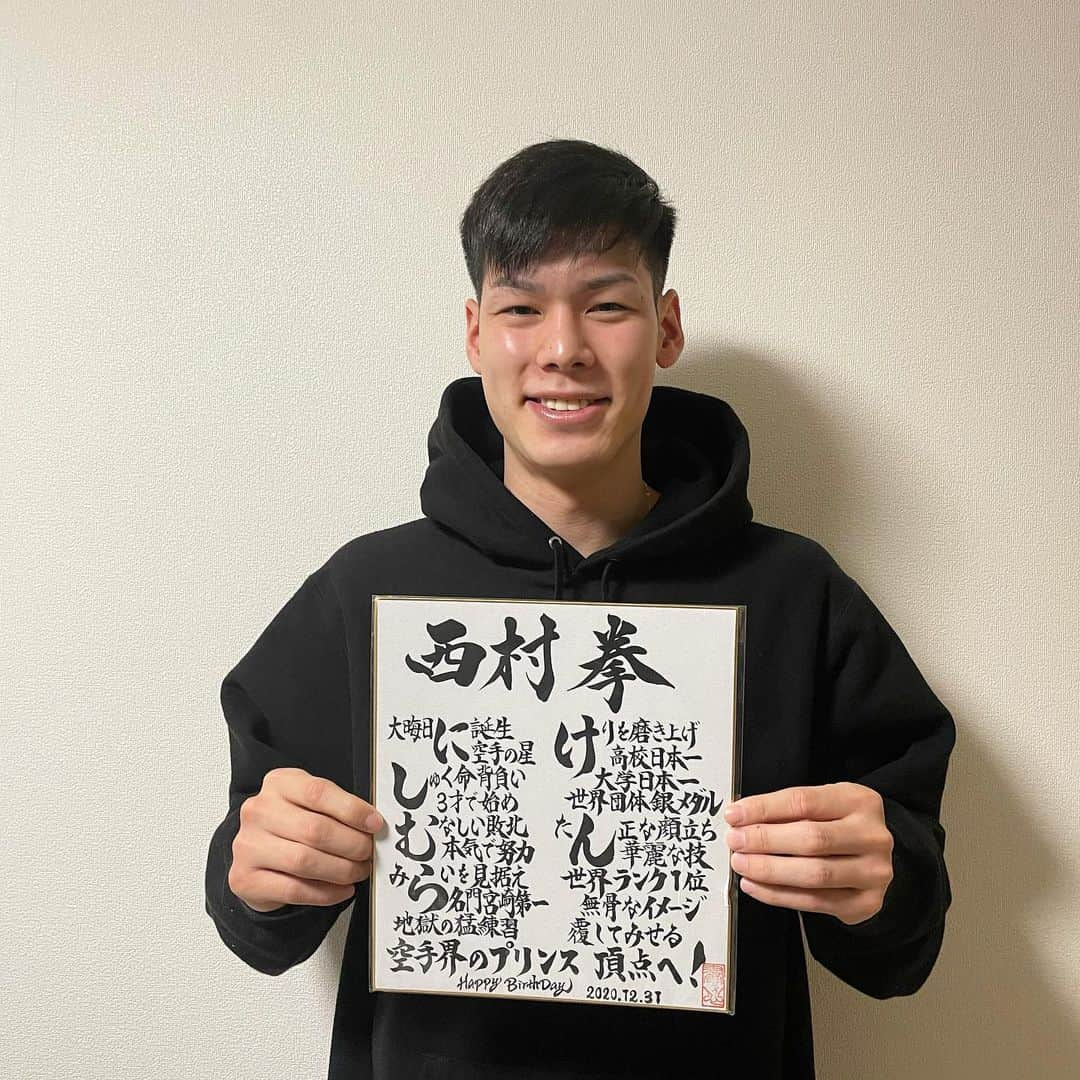 西村 拳
大晦日に誕生
空手の星
しゅく命背負い
3才で始め
むなしい敗北
本気で努力
みらいを見据え
名門宮崎第一
地獄の猛練習
けりを磨き上げ
高校日本一
大学日本一
世界団体銀メダル
たん正な顔立ち
華麗な技
世界ランク1位
無骨なイメージ
覆してみせる
空手界のプリンス 頂点へ!
Happy BirthDay
2020.12.31